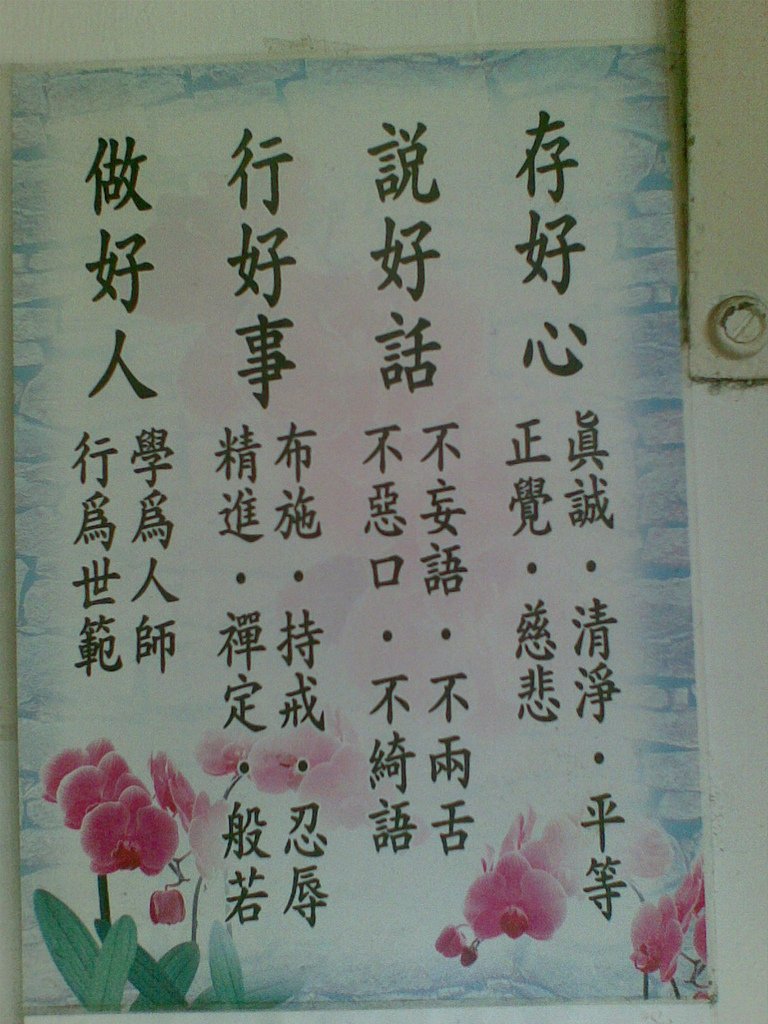 存好心
眞誠・清淨・平等
正覺・慈悲
説好話
不妄語・不兩舌
不惡口・不綺語
行好事
布施・持戒・忍辱
精進・禪定・般若
做好人
學爲人師
行爲世範